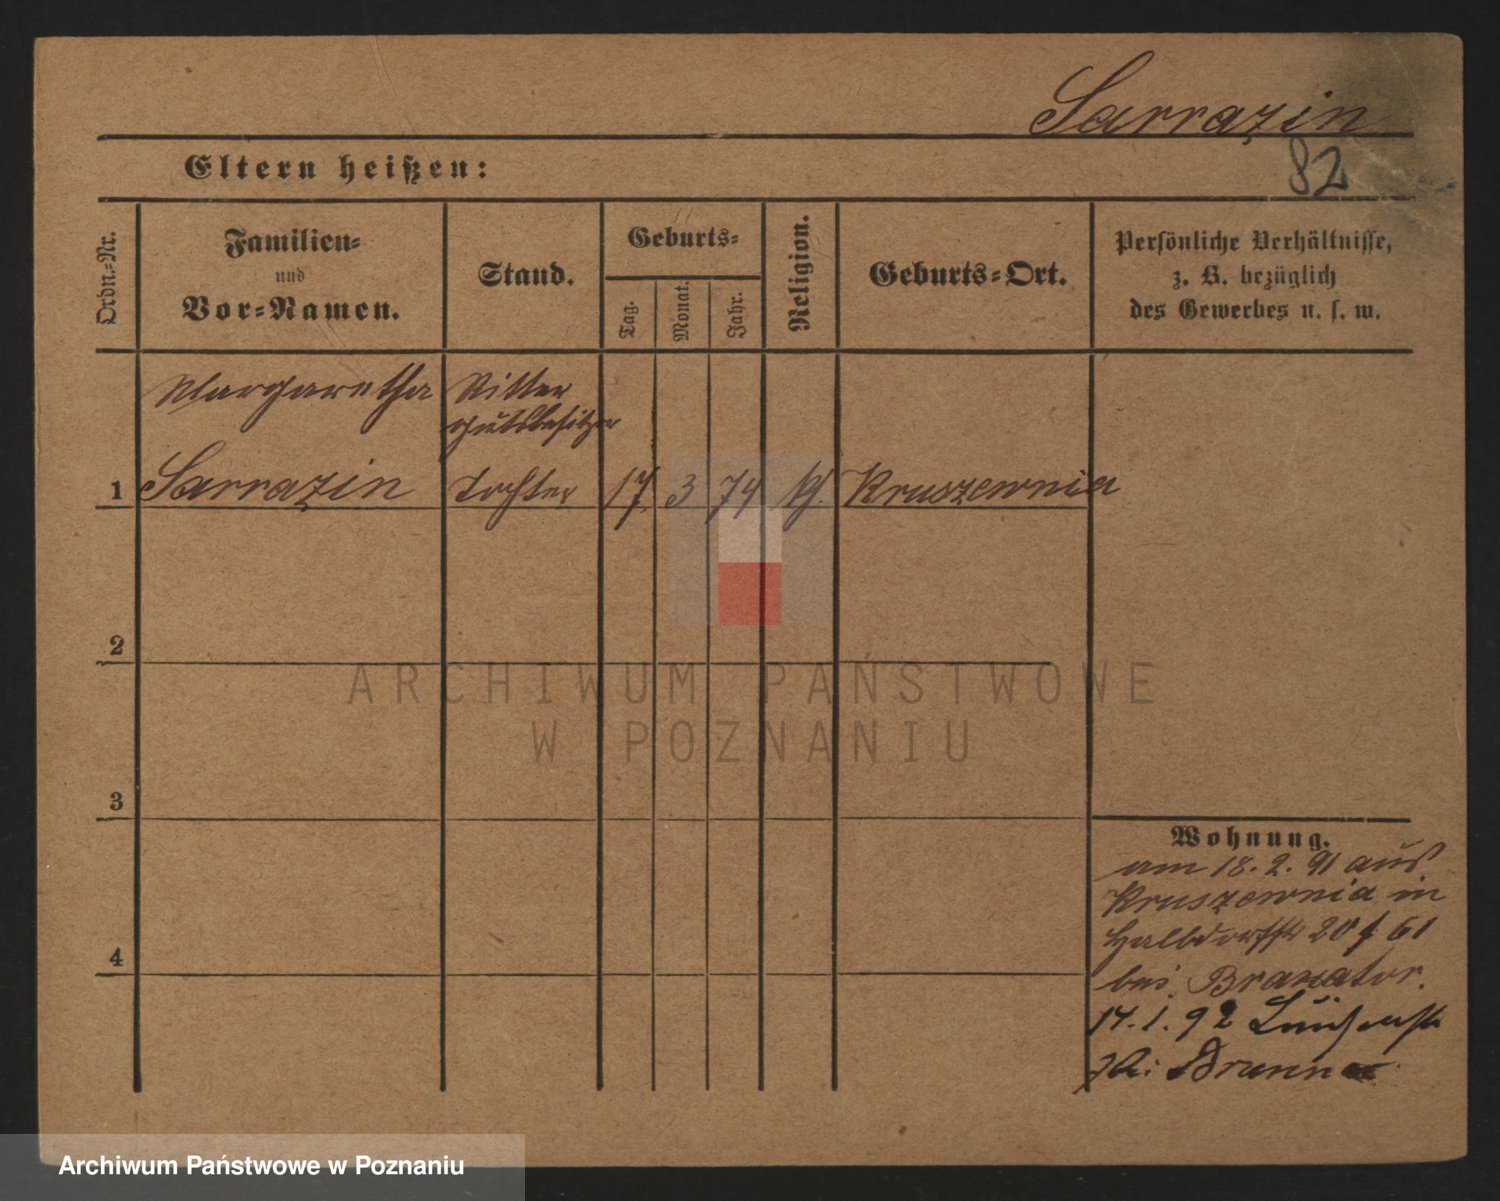 Sarrazin
82
Eltern heißen:
Ordn.-Nr.
Familien-
und
Vor-Namen.
Stand.
Geburts-
Tag.
Monat.
Jahr.
Religion.
Geburts-Ort.
Persönliche Verhältnisse,
z. B. bezüglich
des Gewerbes u. s. w.
Margaretha
Ritter
gutsbesitzer
1 Sarrazin Tochter 17 3 74 Kruszewnia
2
3
4
Wohnung.
am 18. 2. 91 aus
Kruszewnia in
Halbdorfstr 20 61
bei
14. 1. 92
ARCHIWUM PAŃSTWOWE
W POZNANIU
Archiwum Państwowe w Poznaniu